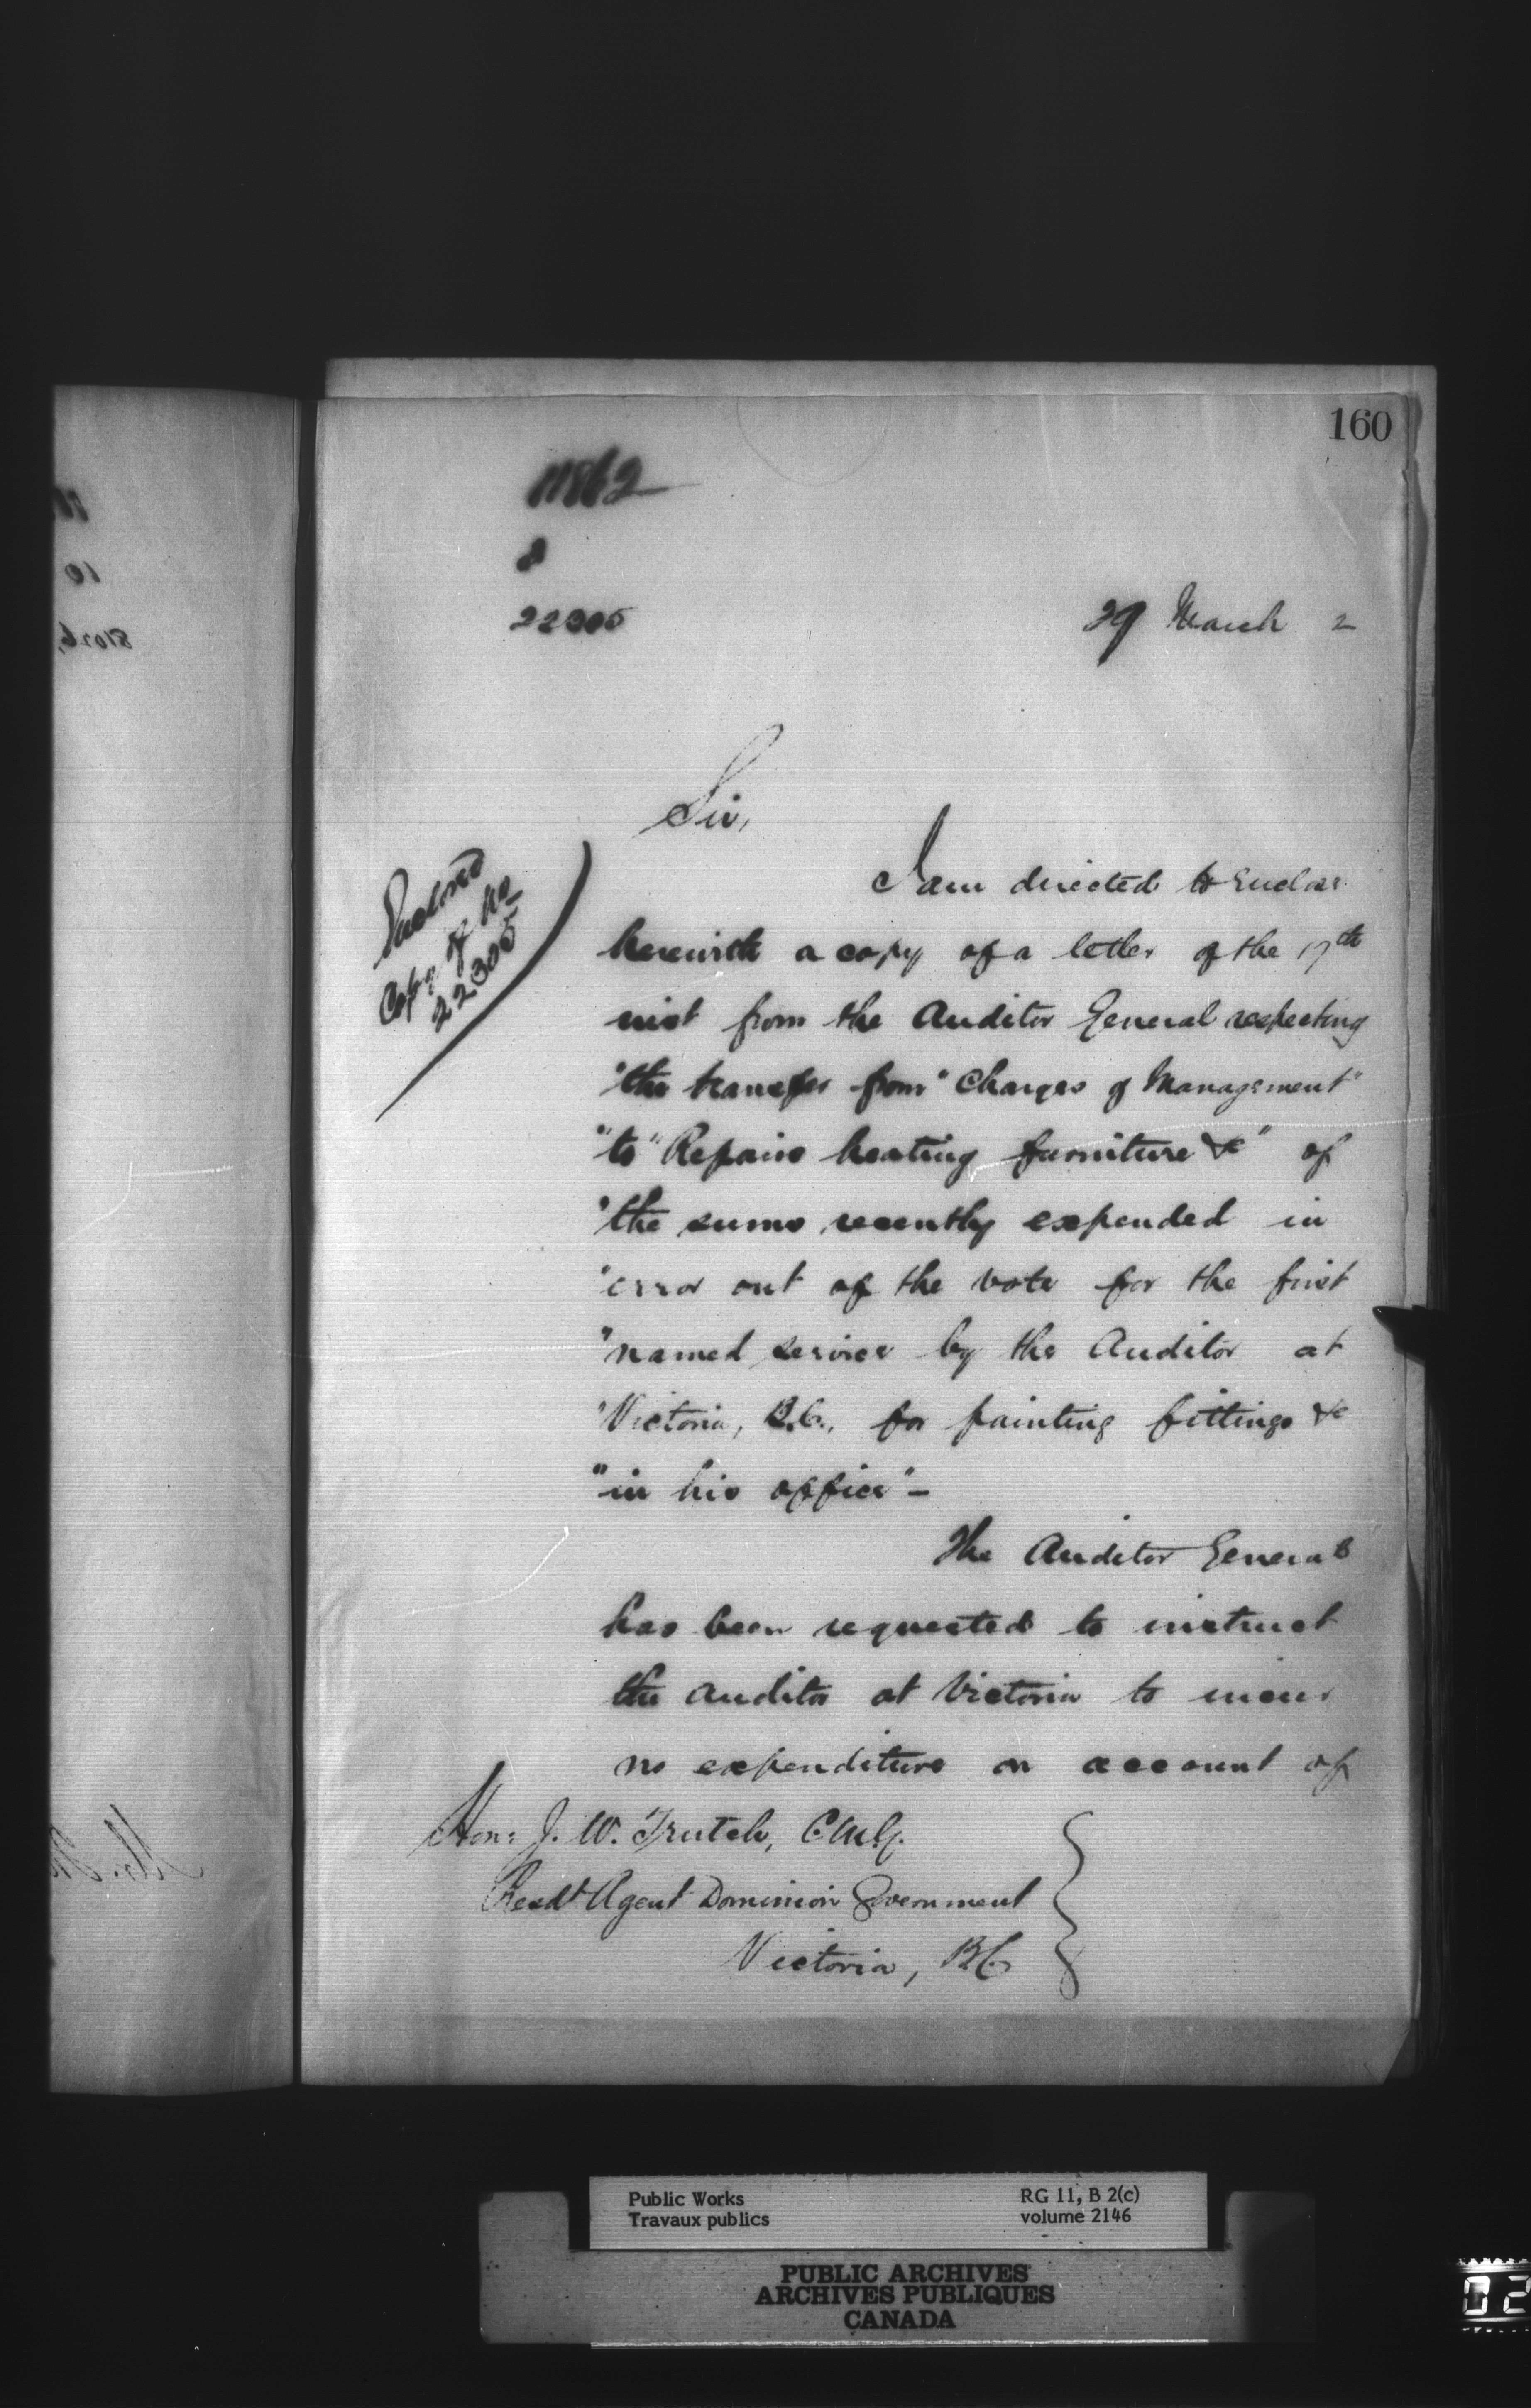 160
11862
22305
29 March 2
Sir,
I am directed to enclose
herewith a copy of a letter of the 17th
inst from the Auditor General respecting
"the transfer from "Charges of Management"
"to "Repairs heating furniture &c" of
"the sums recently expended in
"error out of the vote for the first
"named service by the Auditor at
"Victoria, B.C., for painting fittings &c
"in his office" –
Enclond
Copy of No
22305
The Auditor General
has been requested to instruct
the auditor at Victoria to incur
no expenditure on account of
Hon: J. W. Trutch, C.M.G.
Resdt Agent Dominion Government
Victoria, B.C
Public Works
Travaux publics
RG 11, B 2(c)
volume 2146
PUBLIC ARCHIVES
ARCHIVES PUBLIQUES
CANADA
02